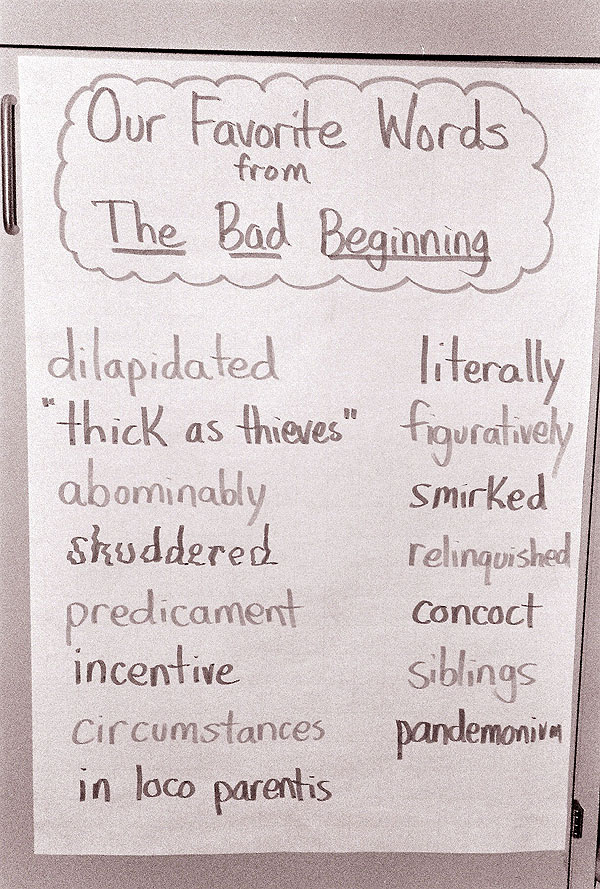 Our Favorite Words
from
The Bad Beginning
dilapidated
"thick as thieves"
abominably
skuddered
predicament
incentive
circumstances
in loco parentis
literally
figuratively
smirked
relinquished
concoct
siblings
pandemonium